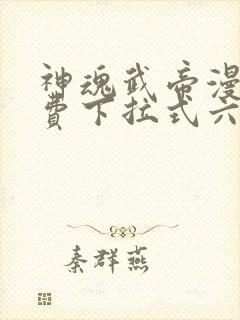 神魂武帝漫
費下拉式六
秦群燕